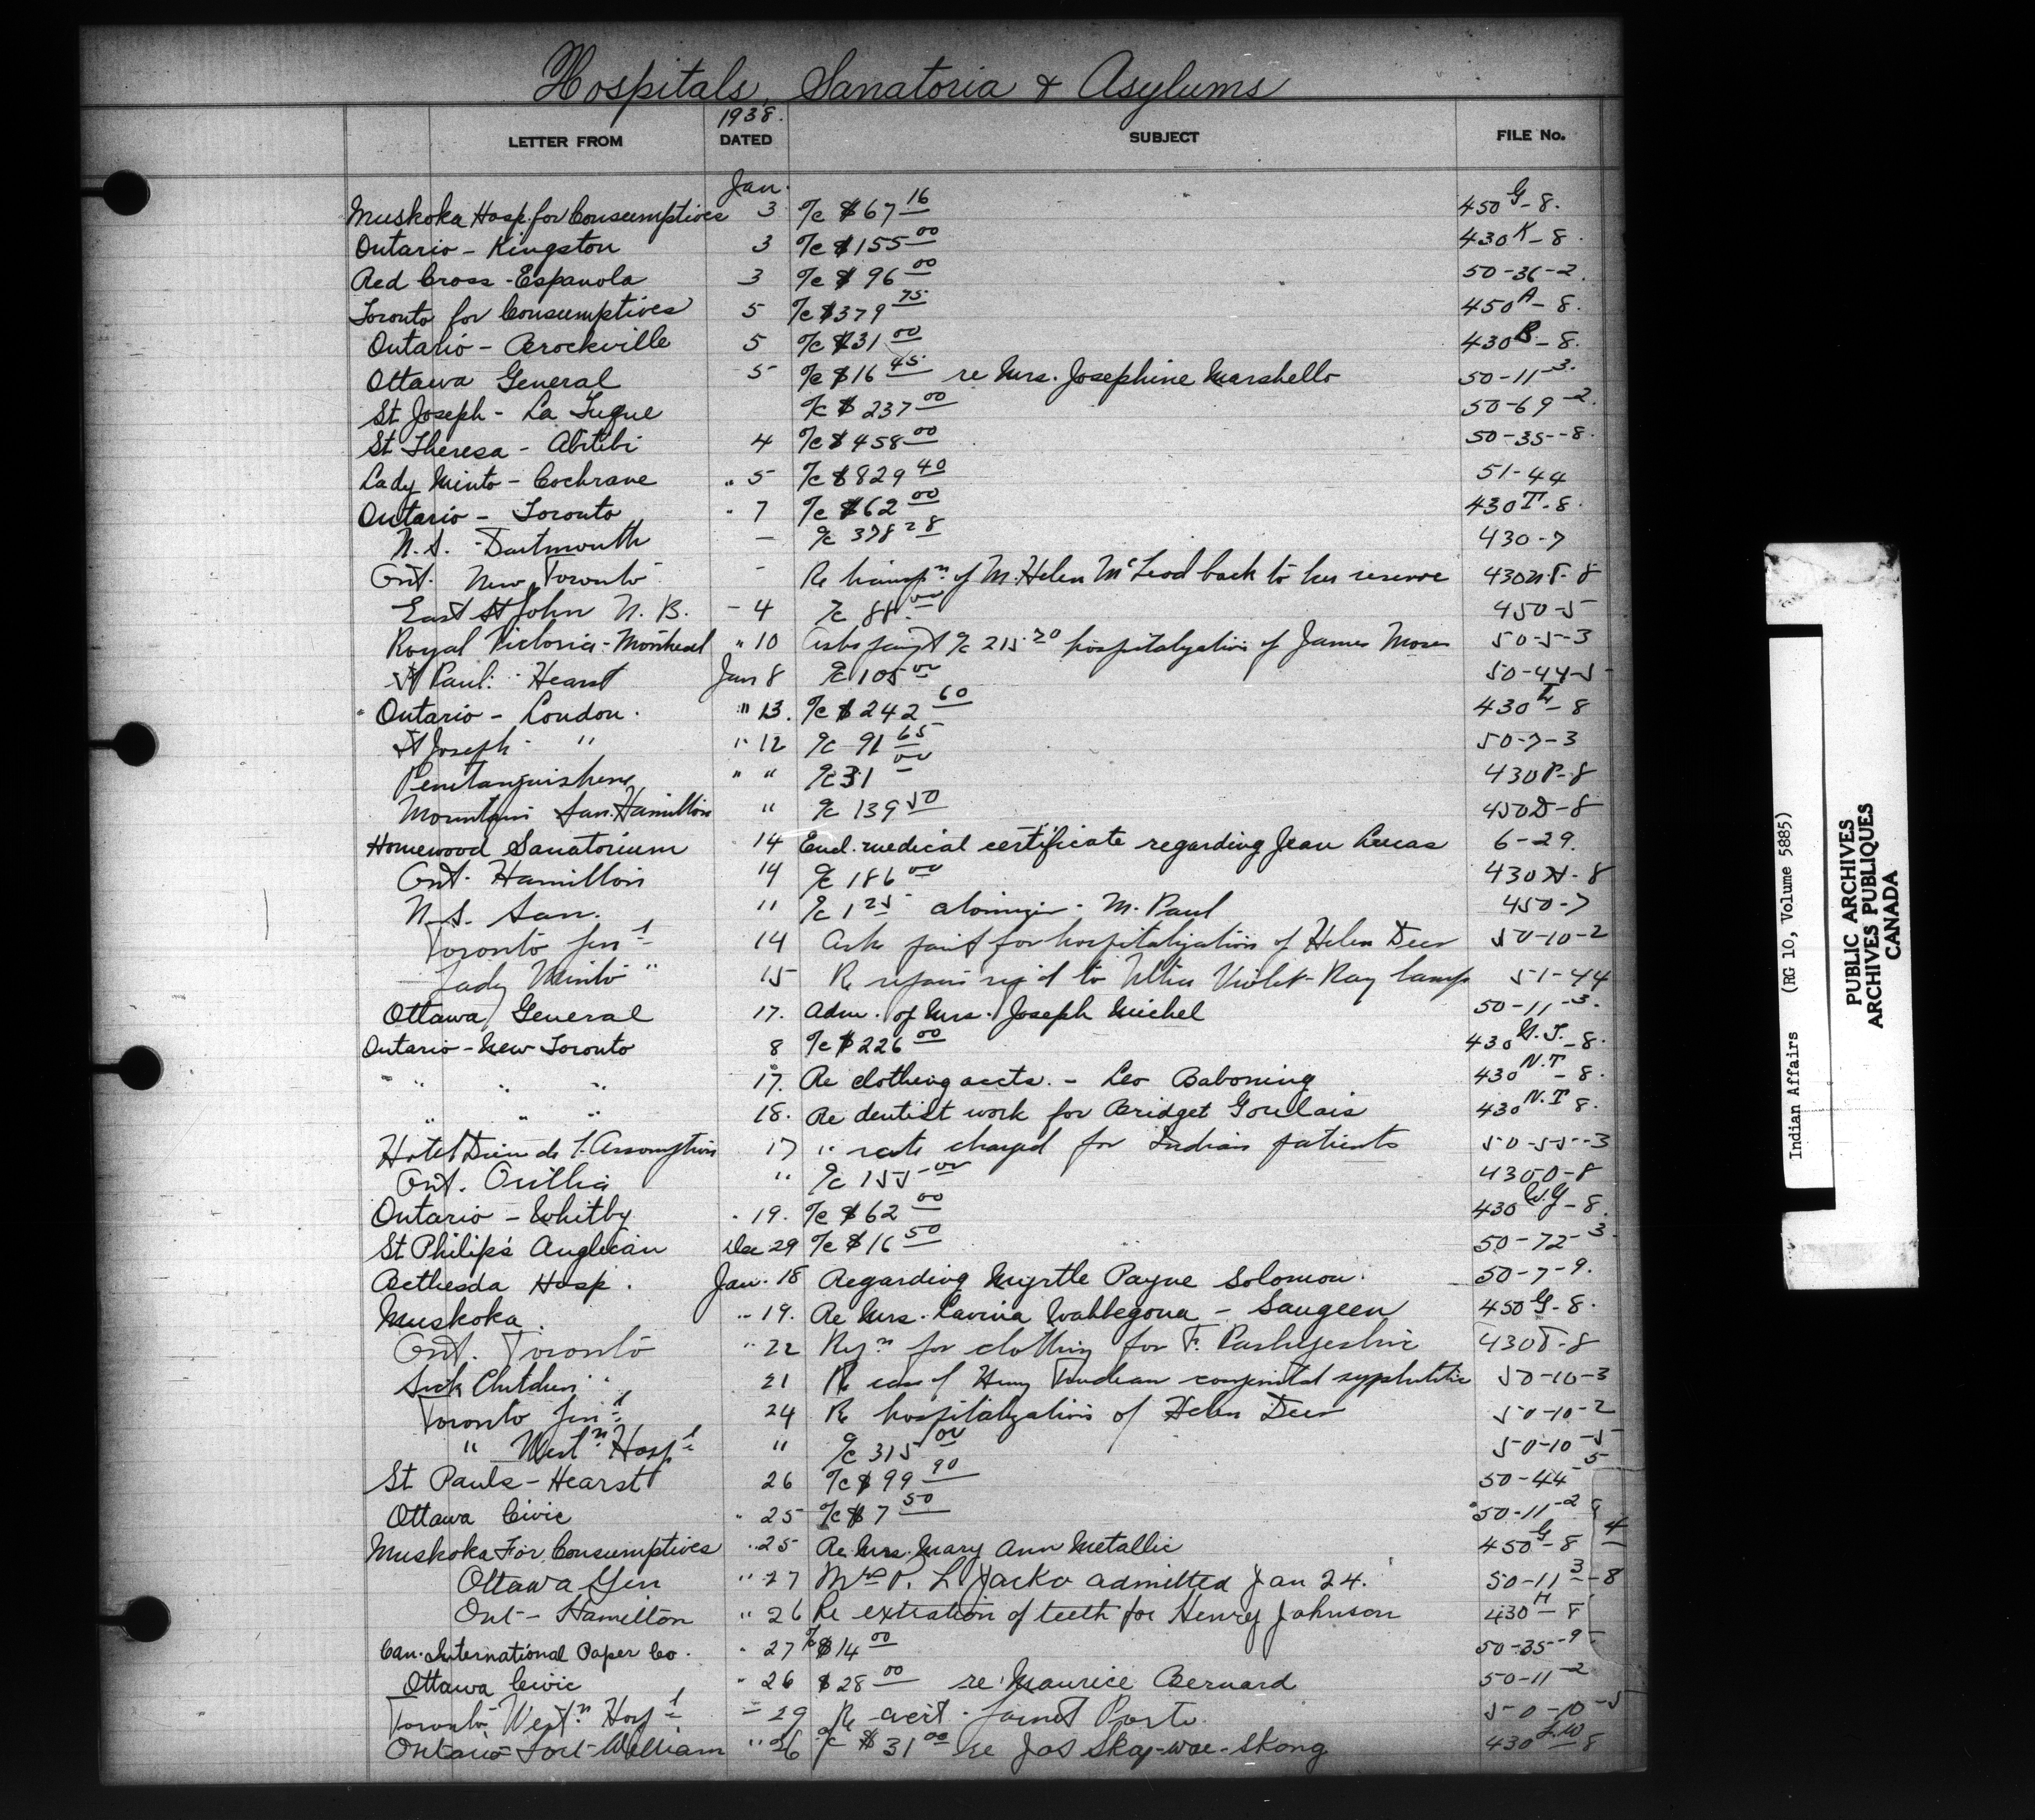 Hospitals, Sanatoria & Asylums
LETTER FROM 1938. DATED SUBJECT FILE No.
Jan.
Muskoka Hosp. for Consumptives 3 a/c $67 16 450 G-8.
Ontario - Kingston 3 a/c $155 00 430 K-8.
Red Cross - Espanola 3 a/c $96 00 50-36-2.
Toronto for Consumptives 5 a/c $379 75 450 A-8.
Ontario - Brockville 5 a/c $31 00 430 B-8.
Ottawa General 5 a/c $16 45 re Mrs. Josephine Marshello 50-11-3.
St Joseph - La Tuque a/c $237 00 50-69-2.
St Theresa - Abitibi 4 a/c $458 00 50-35-8.
Lady Minto - Cochrane " 5 a/c $829 40 51-44
Ontario - Toronto " 7 a/c $62 00 430 T-8.
N.S. - Dartmouth — a/c 378 28 430-7
Ont. New Toronto - Re transp n. of M. Helen McLeod back to her reserve 430 N.T-8
East St John N.B. - 4 a/c 88 00 450-5
Royal Victoria - Montreal " 10 Asks paym't a/c 215.20 hospitalization of James Moses 50-5-3
St Paul. Hearst Jan 8 a/c 105 00 50-44-5
Ontario - London. " 13. a/c $242 60 430 L-8
St Joseph - " " 12 a/c 91 65 50-7-3
Penetanguishene " " a/c 31 00 430 P-8
Mountain San. Hamilton " a/c 139 50 450 D-8
Homewood Sanatorium 14 Encl. medical certificate regarding Jean Lucas 6-29.
Ont. Hamilton 14 a/c 186 00 430 H-8
N.S. San. " a/c 1 25 - M. Paul 450-7
Toronto Gen l 14 Ask paym't for hospitalization of Helen Deer 50-10-2
Lady Minto " 15 Re repairs req'd to Ultra Violet-Ray lamp 51-44
Ottawa General 17. Adm. of Mrs. Joseph Michel 50-11-3.
Ontario - New Toronto 8 a/c $226 00 430 N.T.-8.
" " " 17. Re clothing accts. - Leo Baboning 430 N.T-8.
" " " 18. Re dentist work for Bridget Goulais 430 N.T 8.
Hotel Dieu de l'Assomption 17 " rate charged for Indian patients 50-55-3
Ont. Orillia " a/c 155 00 430 O-8
Ontario - Whitby " 19. a/c $62 00 430 W.G-8.
St Philip's Anglican Dec 29 a/c $16 50 50-72-3.
Bethesda Hosp. Jan. 18 Regarding Myrtle Payne Solomon. 50-7-9.
Muskoka. " 19. Re Mrs. Lavina Wahbegona - Saugeen 450 G-8.
Ont. Toronto " 22 Reqn for clothing for F. 430 T-8
Sick Children " 21 Re case of Henry Trudeau congenital syphilitic 50-10-3
Toronto Gen l 24 Re hospitalization of Helen Deer 50-10-2
" West n Hosp l " a/c 315 00 50-10-5
St Pauls - Hearst 26 a/c $99 90 50-44-5
Ottawa Civic " 25 a/c $7 50 50-11-2
Muskoka For Consumptives " 25 Re Mrs. Mary Ann Metallic 450 G-8
Ottawa Gen " 27 Mrs P. L. Jacko admitted Jan 24. 50-11-3-8
Ont - Hamilton " 26 Re extration of teeth for Henry Johnson 430 H-8
Can. International Paper Co. " 27 a/c $14 00 50-35-9
Ottawa Civic " 26 $28 00 re Maurice Bernard 50-11-2
Toronto West n Hosp l " 29 Re acct. 50-10-5
Ontario - Fort-William " 26 a/c $31 00 re Jos Skay-wae-Skong 430 F.W 8
4
Indian Affairs (RG 10, Volume 5885)
PUBLIC ARCHIVES
ARCHIVES PUBLIQUES
CANADA